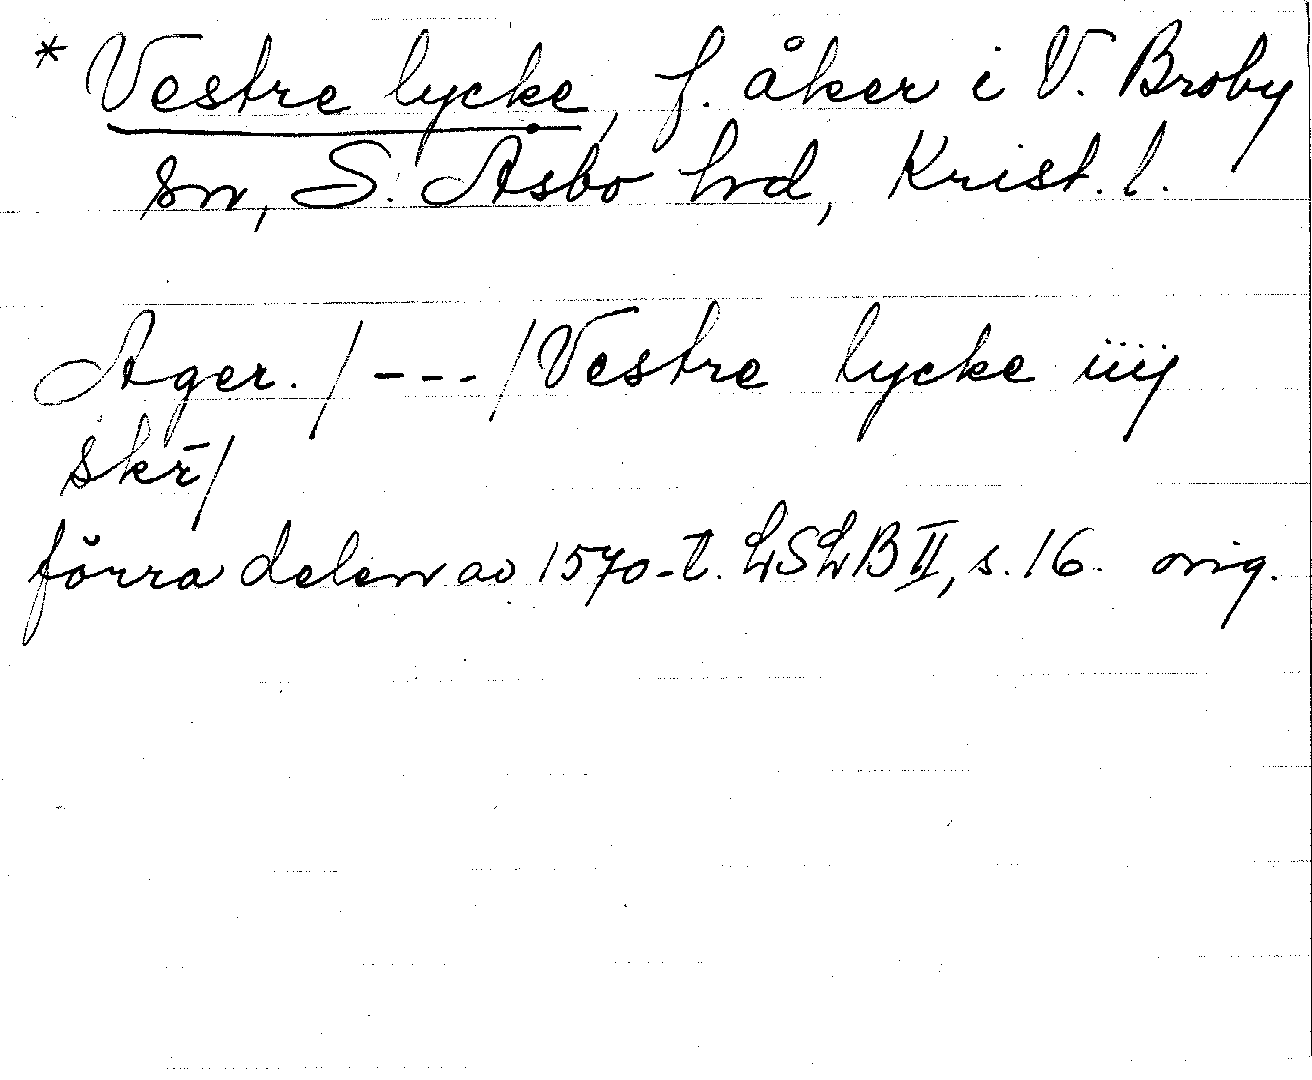 * Vestre lycke, f. åker i V. Broby
sn, S. Åsbo hrd, Krist. l.
Ager. /---/ Vestre lycke iiij
skr̄/
förra delen av 1570-t. LSLB II, s. 16. orig.